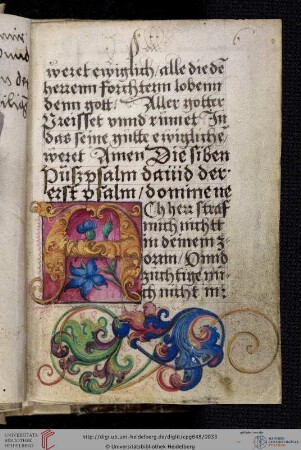 weret ewiglich/alle die dē
herrenn forchtenn lobenn
denn gott/ Aller gotter
Preisset vnnd rümet In
das seine gütte ewigliche
weret Amen Die siben
Püßpsalm dauid der
erst psalm/domine ne
ACh herr straf
mich nichtt
in deinem z⸗
orrnn/Vnnd
züchtige mi⸗
ch nicht in⸗
http://digi.ub.uni-heidelberg.de/diglit/cpg648/0033
© Universitätsbibliothek Heidelberg
UNIVERSITÄTS-
BIBLIOTHEK
HEIDELBERG